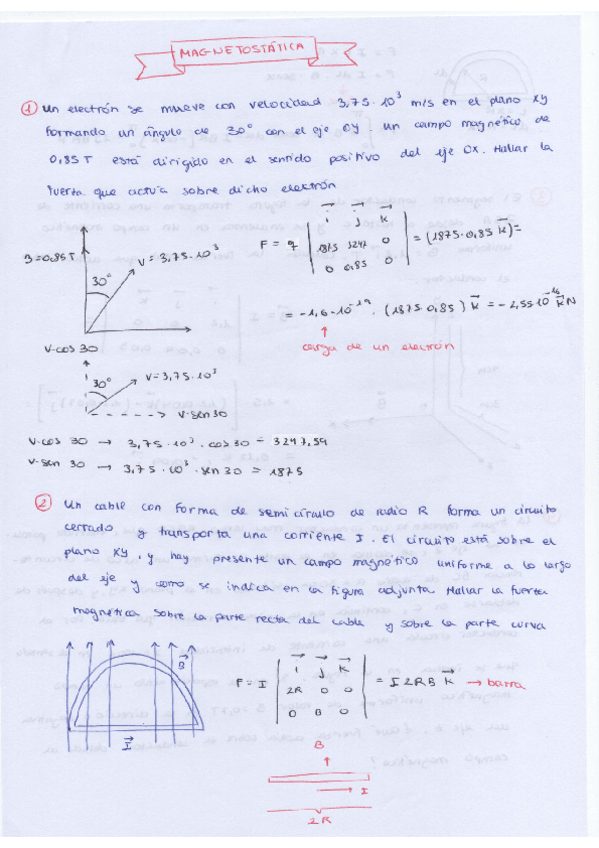 MAGNETOSTÁTICA
① Un electrón se mueve con velocidad 3,75·10³ m/s en el plano xy
formando un ángulo de 30° con el eje OY. Un campo magnético de
0,85 T está dirigido en el sentido positivo del eje OX. Hallar la
fuerza que actúa sobre dicho electrón
B=0,85T
V=3,75·10³
30°
F = q | i j k | 1875 3247 0 | 0 0,85 0 | = (1875·0,85 k) =
= -1,6·10⁻¹⁹ · (1875·0,85) k = -2,55·10⁻¹⁶ k N
carga de un electrón
V·cos 30
30°
V=3,75·10³
V·sen 30
V·cos 30 → 3,75·10³·cos 30 = 3247,59
V·sen 30 → 3,75·10³·sen 30 = 1875
② Un cable con forma de semicírculo de radio R forma un circuito
cerrado y transporta una corriente I. El circuito está sobre el
plano XY, y hay presente un campo magnético uniforme a lo largo
del eje y como se indica en la figura adjunta. Hallar la fuerza
magnética sobre la parte recta del cable y sobre la parte curva
B
I
F = I | i j k | 2R 0 0 | 0 B 0 | = I2RB k → barra
B
I
2R